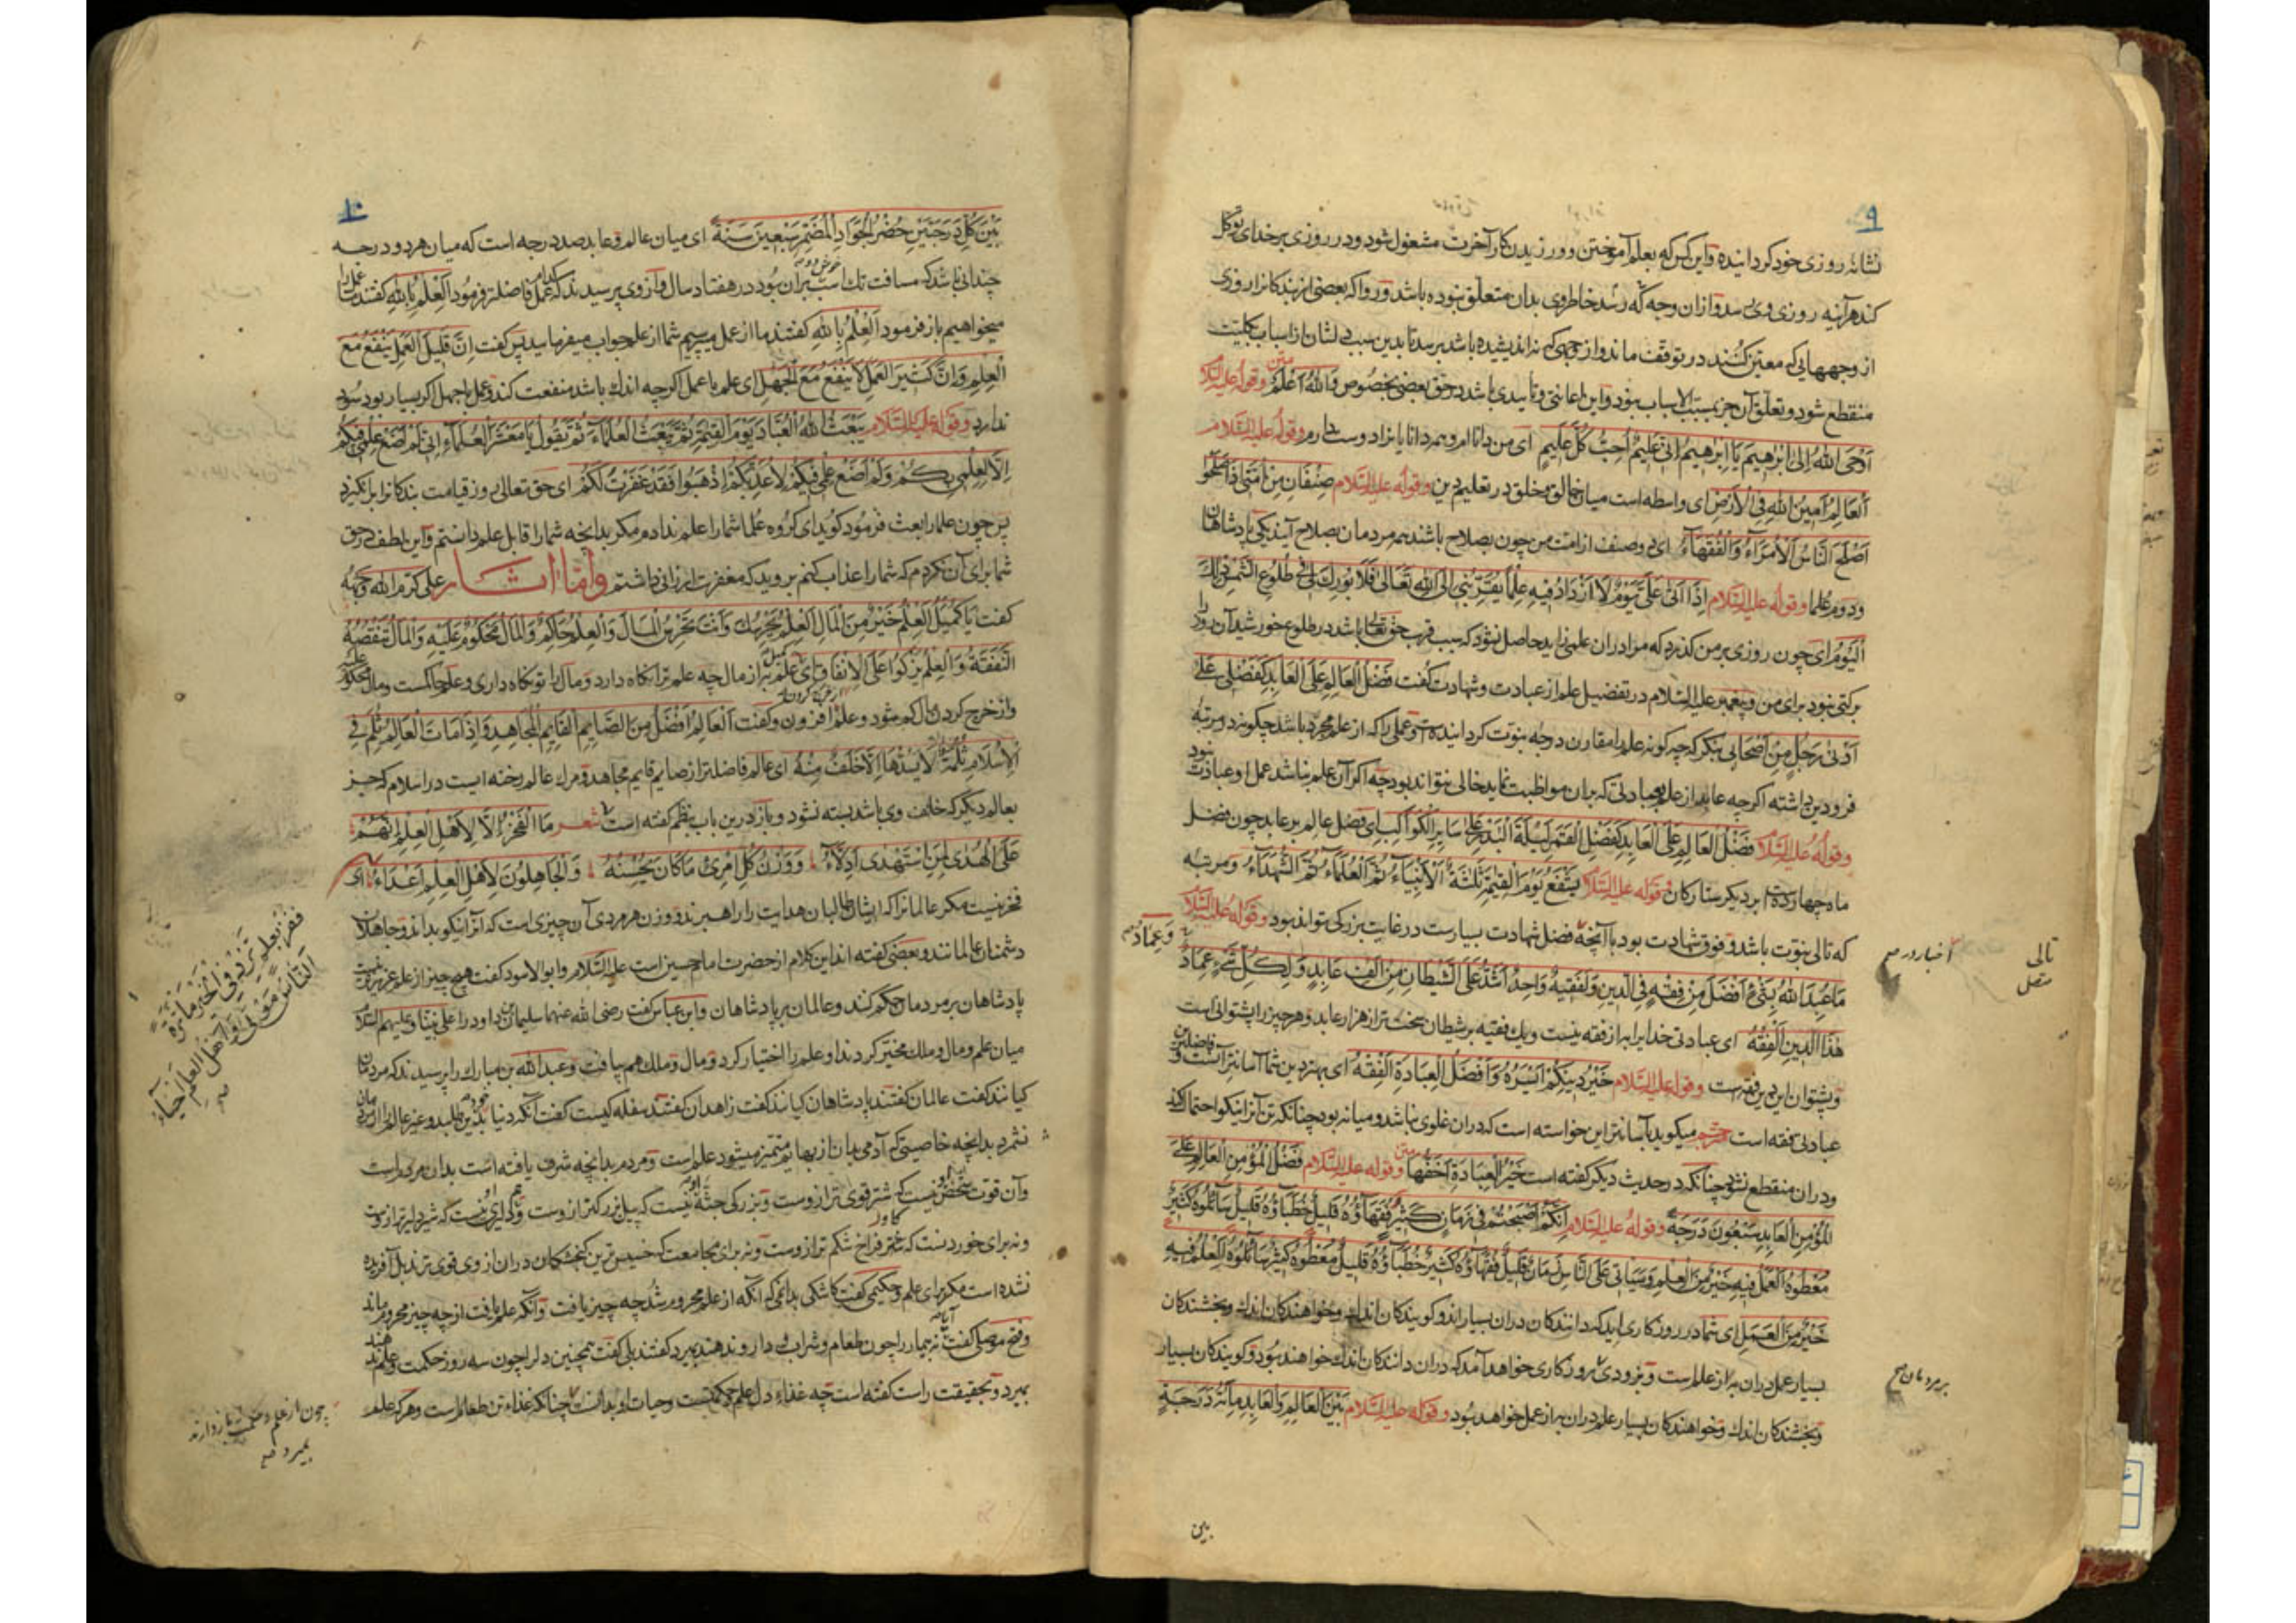 ۹
نشانهٔ روزی خود کردانیده واین کس که بعلم آموختن وورزیدن کار آخرت مشغول شود ودر روزی بر خدای توکل
کند هرآینه روزی وی برسد وازان وجه که رسد خاطر وی بدان متعلق نبوده باشد وروا که بعضی از بندکانرا روزی
از وجههایی که معین کنند در توقف ماند واز وجهی که نه اندیشیده باشد برسد تا بدین سبب دلشان از اسباب بکلیت
منقطع شود وتعلق آن جز بمسبب الاسباب نبود واین اعانتی وتأییدی باشد در حق بعضی بخصوص والله اعلم وقوله علیه السلام
اَوْحَی اللهُ اِلی اِبْرٰهیمَ یَا اِبْرٰهیمُ اِنّی عَلیمٌ اُحِبُّ کُلَّ عَلیمٍ ای من داناام وهر دانایانرا دوست دارم وقوله علیه السلام
اَلعَالِمُ اَمینُ اللهِ فی الاَرضِ ای واسطه است میان خالق ومخلق در تعلیم دین وقوله علیه السلام صِنْفَانِ مِنْ اُمَّتی اِذَا صَلَحُوا
صَلَحَ النَّاسُ اَلاُمَرَآءُ وَالفُقَهَآءُ ای دو صنف از امت من چون بصلاح باشند همه مردمان بصلاح آیند یکی پادشاهان
ودوم علما وقوله علیه السلام اِذَا اَتیٰ عَلَیَّ یَوْمٌ لَا اَزْدَادُ فیهِ عِلْماً یُقَرِّبُنی اِلَی اللهِ تَعَالیٰ فَلَا بُورِکَ لی فی طُلُوعِ الشَّمْسِ ذٰلکَ
الیَوْمِ ای چون روزی بر من کذرد که مرا دران علمی زاید حاصل نشود که سبب قرب حق تعالی باشد در طلوع خورشید آن روز را
برکتی نبود برای من وپیغمبر علیه السلام در تفضیل علم از عبادت وشهادت کفت فَضْلُ العَالِمِ عَلَی العَابِدِ کَفَضْلی عَلیٰ
اَدْنیٰ رَجُلٍ مِنْ اَصْحَابی بنکر که چه کونه علم را مقارن درجهٔ نبوت کردانیده است وعملی را که از علم مجرد باشد چکونه در مرتبهٔ
فرودین داشته اکرچه عابد از علم بعبادتی که بران مواظبت نماید خالی نتواند بود چه اکر آن علم نباشد عمل او عبادت نبود
وقوله علیه السلام فَضْلُ العَالِمِ عَلَی العَابِدِ کَفَضْلِ القَمَرِ لَیْلَةَ البَدْرِ عَلیٰ سَایِرِ الکَوَاکِبِ ای فضل عالم بر عابد چون فضل
ماه چهارده است بر دیکر ستارکان وقوله علیه السلام یَشْفَعُ یَوْمَ القِیٰمَةِ ثَلٰثَةٌ اَلاَنْبِیَآءُ ثُمَّ العُلَمَآءُ ثُمَّ الشُّهَدَآءُ ومرتبهٔ
که تالی نبوت باشد وفوق شهادت بود با آنچه فضل شهادت بسیارست در غایت بزرکی تواند بود وقوله علیه السلام
مَا عُبِدَ اللهُ بِشَیْءٍ اَفْضَلَ مِنْ فِقْهٍ فِی الدّینِ وَلَفَقیهٌ وَاحِدٌ اَشَدُّ عَلَی الشَّیْطَانِ مِنْ اَلْفِ عَابِدٍ وَلِکُلِّ شَیْءٍ عِمَادٌ
وَعِمَادُ
هٰذَا الدّینِ الفِقْهُ ای عبادتی خدایرا به از فقه نیست ویک فقیه بر شیطان سخت تر از هزار عابد وهر چیز را پشتوانی است
وپشتوان این دین فقهست وقوله علیه السلام خَیْرُ دینِکُمْ اَیْسَرُهُ وَاَفْضَلُ العِبَادَةِ الفِقْهُ ای بهتر دین شما آسانتر آنست وفاضلترین
عبادتی فقه است مترجم میکوید بآسانتر این خواسته است که دران غلوی نباشد ومیانه بود چنانکه تن آنرا نیکو احتمال کند
ودران منقطع نشود چنانکه در حدیث دیکر کفته است خَیْرُ العِبَادَةِ اَخَفُّهَا وقوله علیه السلام فَضْلُ المُؤْمِنِ العَالِمِ عَلیٰ
المُؤْمِنِ العَابِدِ سَبْعُونَ دَرَجَةً وقوله علیه السلام اِنَّکُمْ اَصْبَحْتُمْ فی زَمَانٍ کَثیرٍ فُقَهَآؤُهُ قَلیلٍ خُطَبَآؤُهُ قَلیلٍ سَآئِلُوهُ کَثیرٍ
مُعْطُوهُ العَمَلُ فیهِ خَیْرٌ مِنَ العِلْمِ وَسَیَأتی عَلَی النَّاسِ زَمَانٌ قَلیلٌ فُقَهَآؤُهُ کَثیرٌ خُطَبَآؤُهُ قَلیلٌ مُعْطُوهُ کَثیرٌ سَآئِلُوهُ العِلْمُ فیهِ
خَیْرٌ مِنَ العَمَلِ ای شما در روزکاری اید که دانندکان دران بسیار اند وکویندکان اندک وخواهندکان اندک وبخشندکان
بسیار عمل دران به از علمست وبزودی روزکاری خواهد آمد که دران دانندکان اندک خواهند بود وکویندکان بسیار
وبخشندکان اندک وخواهندکان بسیار علم دران به از عمل خواهد بود وقوله علیه السلام بَیْنَ العَالِمِ وَالعَابِدِ مِأَئةُ دَرَجَةٍ
تالی
متصل
بین
۱۰
بَیْنَ کُلِّ دَرَجَتَیْنِ حُضْرُ الجَوَادِ المُضَمَّرِ سَبْعینَ سَنَةً ای میان عالم وعابد صد درجه است که میان هر دو درجه
چندانی باشد که مسافت تک اسب بران بود در هفتاد سال وازوی پرسیدند که کدام عمل فاضلتر فرمود اَلعِلْمُ بِاللهِ کفتند عمل را
میخواهیم باز فرمود اَلعِلْمُ بِاللهِ کفتند ما از عمل میپرسیم شما از علم جواب میفرمایید پس کفت اِنَّ قَلیلَ العَمَلِ یَنْفَعُ مَعَ
العِلْمِ وَاِنَّ کَثیرَ العَمَلِ لَا یَنْفَعُ مَعَ الجَهْلِ ای علم با عمل اکرچه اندک باشد منفعت کند وعمل باجهل اکر بسیار بود سود
ندارد وقوله علیه السلام یَبْعَثُ اللهُ العِبَادَ یَوْمَ القِیٰمَةِ ثُمَّ یَبْعَثُ العُلَمَآءَ ثُمَّ یَقُولُ یَا مَعْشَرَ العُلَمَآءِ اِنّی لَمْ اَضَعْ عِلْمی فیکُمْ
اِلَّا لِعِلْمی بِکُمْ وَلَمْ اَضَعْ عِلْمی فیکُمْ لِاُعَذِّبَکُمْ اِذْهَبُوا فَقَدْ غَفَرْتُ لَکُمْ ای حق تعالی روز قیامت بندکانرا برانکیزد
پس چون علما را بعث فرمود کوید ای کروه علما شما را علم ندادم مکر بدانچه شما را قابل علم دانستم واین لطف در حق
شما برای آن نکردم که شما را عذاب کنم بروید که مغفرت ارزانی داشتم واما اثار علی کرم الله وجهه
کفت یَا کُمَیْلُ العِلْمُ خَیْرٌ مِنَ المَالِ العِلْمُ یَحْرُسُکَ وَاَنْتَ تَحْرُسُ المَالَ وَالعِلْمُ حَاکِمٌ وَالمَالُ مَحْکُومٌ عَلَیْهِ وَالمَالُ تَنْقُصُهُ
النَّفَقَةُ وَالعِلْمُ یَزْکُوا عَلَی الاِنْفَاقِ ای کمیل علم به از مال چه علم ترا نکاه دارد ومال را تو نکاه داری وعلم حاکمست ومال محکوم علیه
واز خرج کردن مال کم شود وعلم افزون وکفت اَلعَالِمُ اَفْضَلُ مِنَ الصَّایِمِ القَایِمِ المُجَاهِدِ وَاِذَا مَاتَ العَالِمُ ثُلِمَ فِی
الاِسْلَامِ ثُلْمَةٌ لَا یَسُدُّهَا اِلَّا خَلَفٌ مِنْهُ ای عالم فاضلتر از صایم قایم مجاهد ومرک عالم رخنه ایست در اسلام که جز
بعالم دیکر که خلف وی باشد بسته نشود وباز درین باب بنظم کفته است شعر مَا الفَخْرُ اِلَّا لِاَهْلِ العِلْمِ اِنَّهُمْ
عَلَی الهُدیٰ لِمَنِ اسْتَهْدیٰ اَدِلَّآءُ وَوَزْنُ کُلِّ امْرِئٍ مَا کَانَ یُحْسِنُهُ وَالجَاهِلُونَ لِاَهْلِ العِلْمِ اَعْدَآءُ ای
فخر نیست مکر عالمانرا که ایشان طالبان هدایت را راهبرند ووزن هر مردی آن چیزی است که آنرا نیکو بداند وجاهلان
دشمنان عالمانند وبعضی کفته اند این کلام از حضرت امام حسین است علیه السلام وابو الاسود کفت هیچ چیز از علم عزیزتر نیست
پادشاهان بر مردمان حکم کنند وعالمان بر پادشاهان وابن عباس کفت رضی الله عنهما سلیمان بن داود را علی نبینا وعلیهم السلام
میان علم ومال وملک مخیر کردند او علم را اختیار کرد ومال وملک هم بیافت وعبد الله بن مبارک را پرسیدند که مردمان
کیانند کفت عالمان کفتند پادشاهان کیانند کفت زاهدان کفتند سفله کیست کفت آنکه دنیا بدین خود طلبد وغیر عالم را از مردمان
نشمرد بدانچه خاصیتی که آدمی بدان از بهایم متمیز میشود علمست ومردم بدانچه شرف یافته است بدان مردمست
وآن قوت شخص نیست که شتر قوی تر ازوست وبزرکی جثه نیست که پیل بزرکتر ازوست ودلیری نیست که شیر دلیرتر ازوست
ونه برای خوردنست که شتر فراخ شکم تر ازوست ونه برای مجامعت که خسیس ترین کنجشکان دران از وی قوی ترند بل آفریده
نشده است مکر برای علم وحکیمی کفت کاشکی بدانمی که آنکه از علم محروم شد چه چیز یافت وآنکه علم یافت از چه چیز محروم ماند
وفتح موصلی کفت نه بیمار را چون طعام وشراب ودارو ندهند بمیرد کفتند بلی کفت همچنین دل را چون سه روز حکمت وعلم ندهند
بمیرد وبحقیقت راست کفته است چه غذاء دل علم وحکمتست وحیات او بدانست چنانکه غذاء تن طعامست وهرکه علم
فَفُزْ بِعِلْمٍ
النَّاسُ مَوْتیٰ وَاَهْلُ العِلْمِ اَحْیَآءُ
چون از علم وحکمت باز دارند
بمیرد